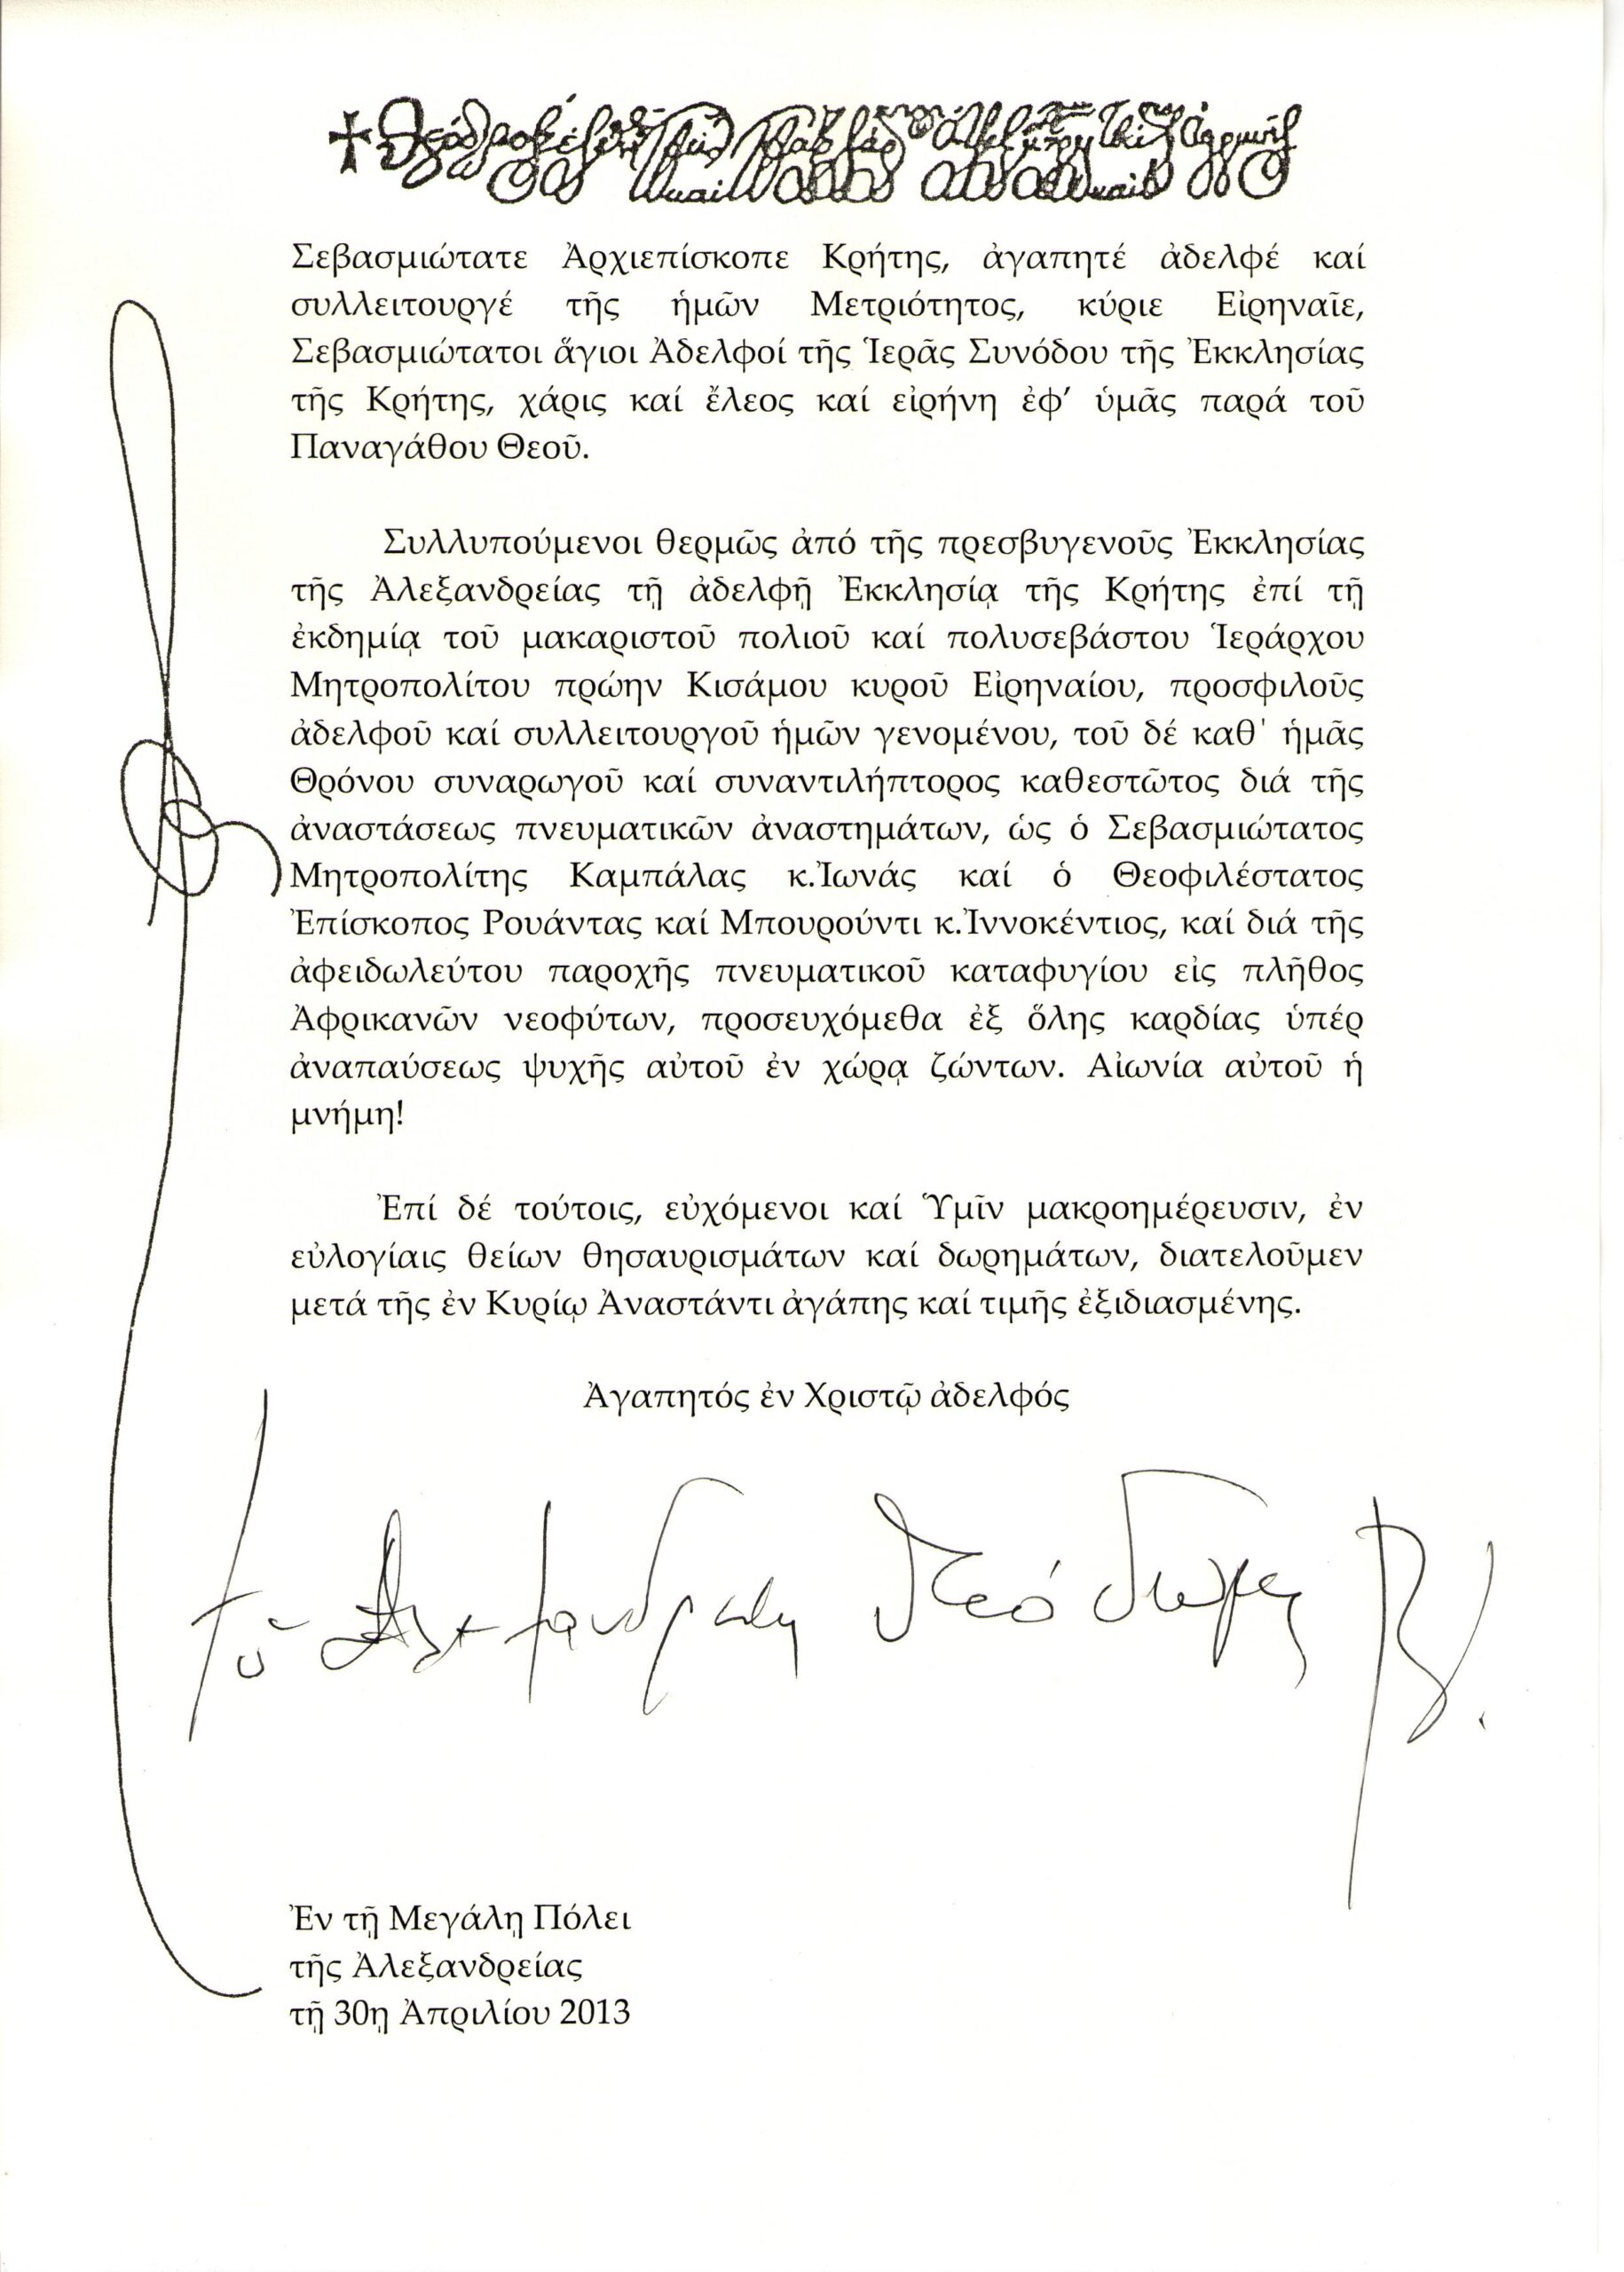 Σεβασμιώτατε Ἀρχιεπίσκοπε Κρήτης, ἀγαπητέ ἀδελφέ καί
συλλειτουργέ τῆς ἡμῶν Μετριότητος, κύριε Εἰρηναῖε,
Σεβασμιώτατοι ἅγιοι Ἀδελφοί τῆς Ἱερᾶς Συνόδου τῆς Ἐκκλησίας
τῆς Κρήτης, χάρις καί ἔλεος καί εἰρήνη ἐφ’ ὑμᾶς παρά τοῦ
Παναγάθου Θεοῦ.
Συλλυπούμενοι θερμῶς ἀπό τῆς πρεσβυγενοῦς Ἐκκλησίας
τῆς Ἀλεξανδρείας τῇ ἀδελφῇ Ἐκκλησίᾳ τῆς Κρήτης ἐπί τῇ
ἐκδημίᾳ τοῦ μακαριστοῦ πολιοῦ καί πολυσεβάστου Ἱεράρχου
Μητροπολίτου πρώην Κισάμου κυροῦ Εἰρηναίου, προσφιλοῦς
ἀδελφοῦ καί συλλειτουργοῦ ἡμῶν γενομένου, τοῦ δέ καθ' ἡμᾶς
Θρόνου συναρωγοῦ καί συναντιλήπτορος καθεστῶτος διά τῆς
ἀναστάσεως πνευματικῶν ἀναστημάτων, ὡς ὁ Σεβασμιώτατος
Μητροπολίτης Καμπάλας κ.Ἰωνάς καί ὁ Θεοφιλέστατος
Ἐπίσκοπος Ρουάντας καί Μπουρούντι κ.Ἰννοκέντιος, καί διά τῆς
ἀφειδωλεύτου παροχῆς πνευματικοῦ καταφυγίου εἰς πλῆθος
Ἀφρικανῶν νεοφύτων, προσευχόμεθα ἐξ ὅλης καρδίας ὑπέρ
ἀναπαύσεως ψυχῆς αὐτοῦ ἐν χώρᾳ ζώντων. Αἰωνία αὐτοῦ ἡ
μνήμη!
Ἐπί δέ τούτοις, εὐχόμενοι καί Ὑμῖν μακροημέρευσιν, ἐν
εὐλογίαις θείων θησαυρισμάτων καί δωρημάτων, διατελοῦμεν
μετά τῆς ἐν Κυρίῳ Ἀναστάντι ἀγάπης καί τιμῆς ἐξιδιασμένης.
Ἀγαπητός ἐν Χριστῷ ἀδελφός
Θεόδωρος Β΄
Ἐν τῇ Μεγάλῃ Πόλει
τῆς Ἀλεξανδρείας
τῇ 30ῃ Ἀπριλίου 2013